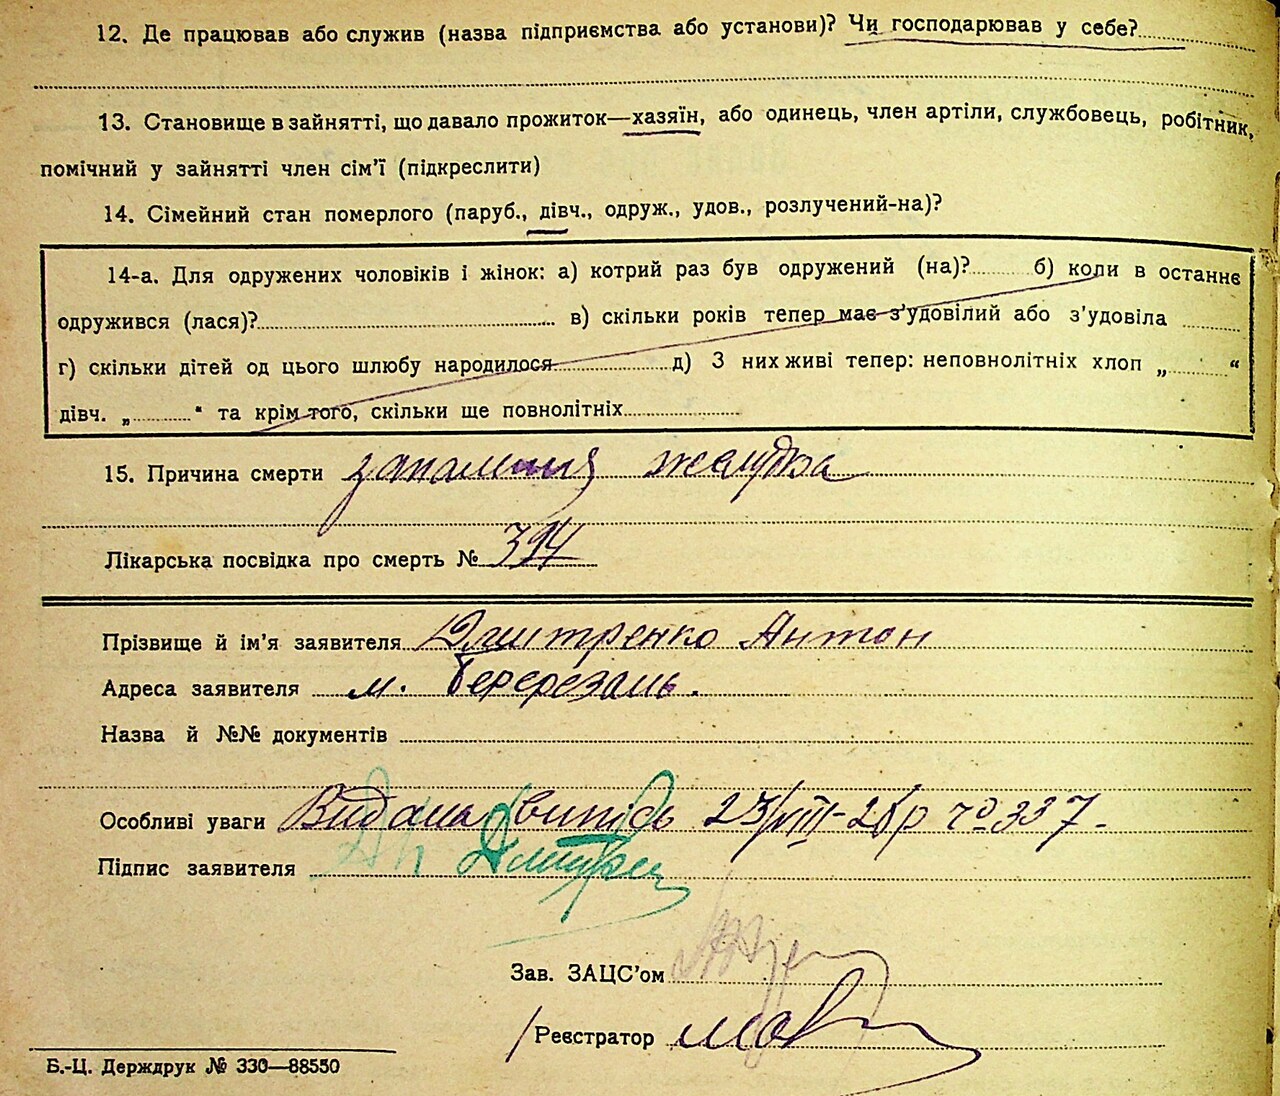 12. Де працював або служив (назва підприємства або установи)? Чи господарював у себе?
13. Становище в зайнятті, що давало прожиток—хазяїн, або одинець, член артіли, службовець, робітник,
помічний у зайнятті член сім'ї (підкреслити)
14. Сімейний стан померлого (паруб., дівч., одруж., удов., розлучений-на)?
14-а. Для одружених чоловіків і жінок: а) котрий раз був одружений (на)? б) коли в останнє
одружився (лася)? в) скільки років тепер має з'удовілий або з'удовіла
г) скільки дітей од цього шлюбу народилося д) З них живі тепер: неповнолітніх хлоп „ “
дівч. „ “ та крім того, скільки ще повнолітніх
15. Причина смерти запалення желудка
Лікарська посвідка про смерть №
Прізвище й ім'я заявителя Дмитренко Антон
Адреса заявителя м. Беререзань.
Назва й №№ документів
Особливі уваги Видана випись 23/VIII-28р № 337-
Підпис заявителя
Зав. ЗАЦС'ом
Реєстратор
Б.-Ц. Держдрук № 330—88550